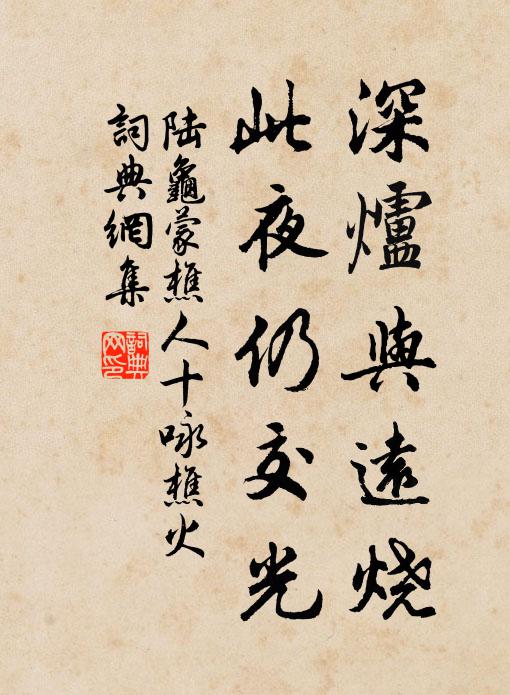 深爐與遠燒
此夜仍交光
陆龜蒙樵人十咏樵火
詞典網集
詞典
网印